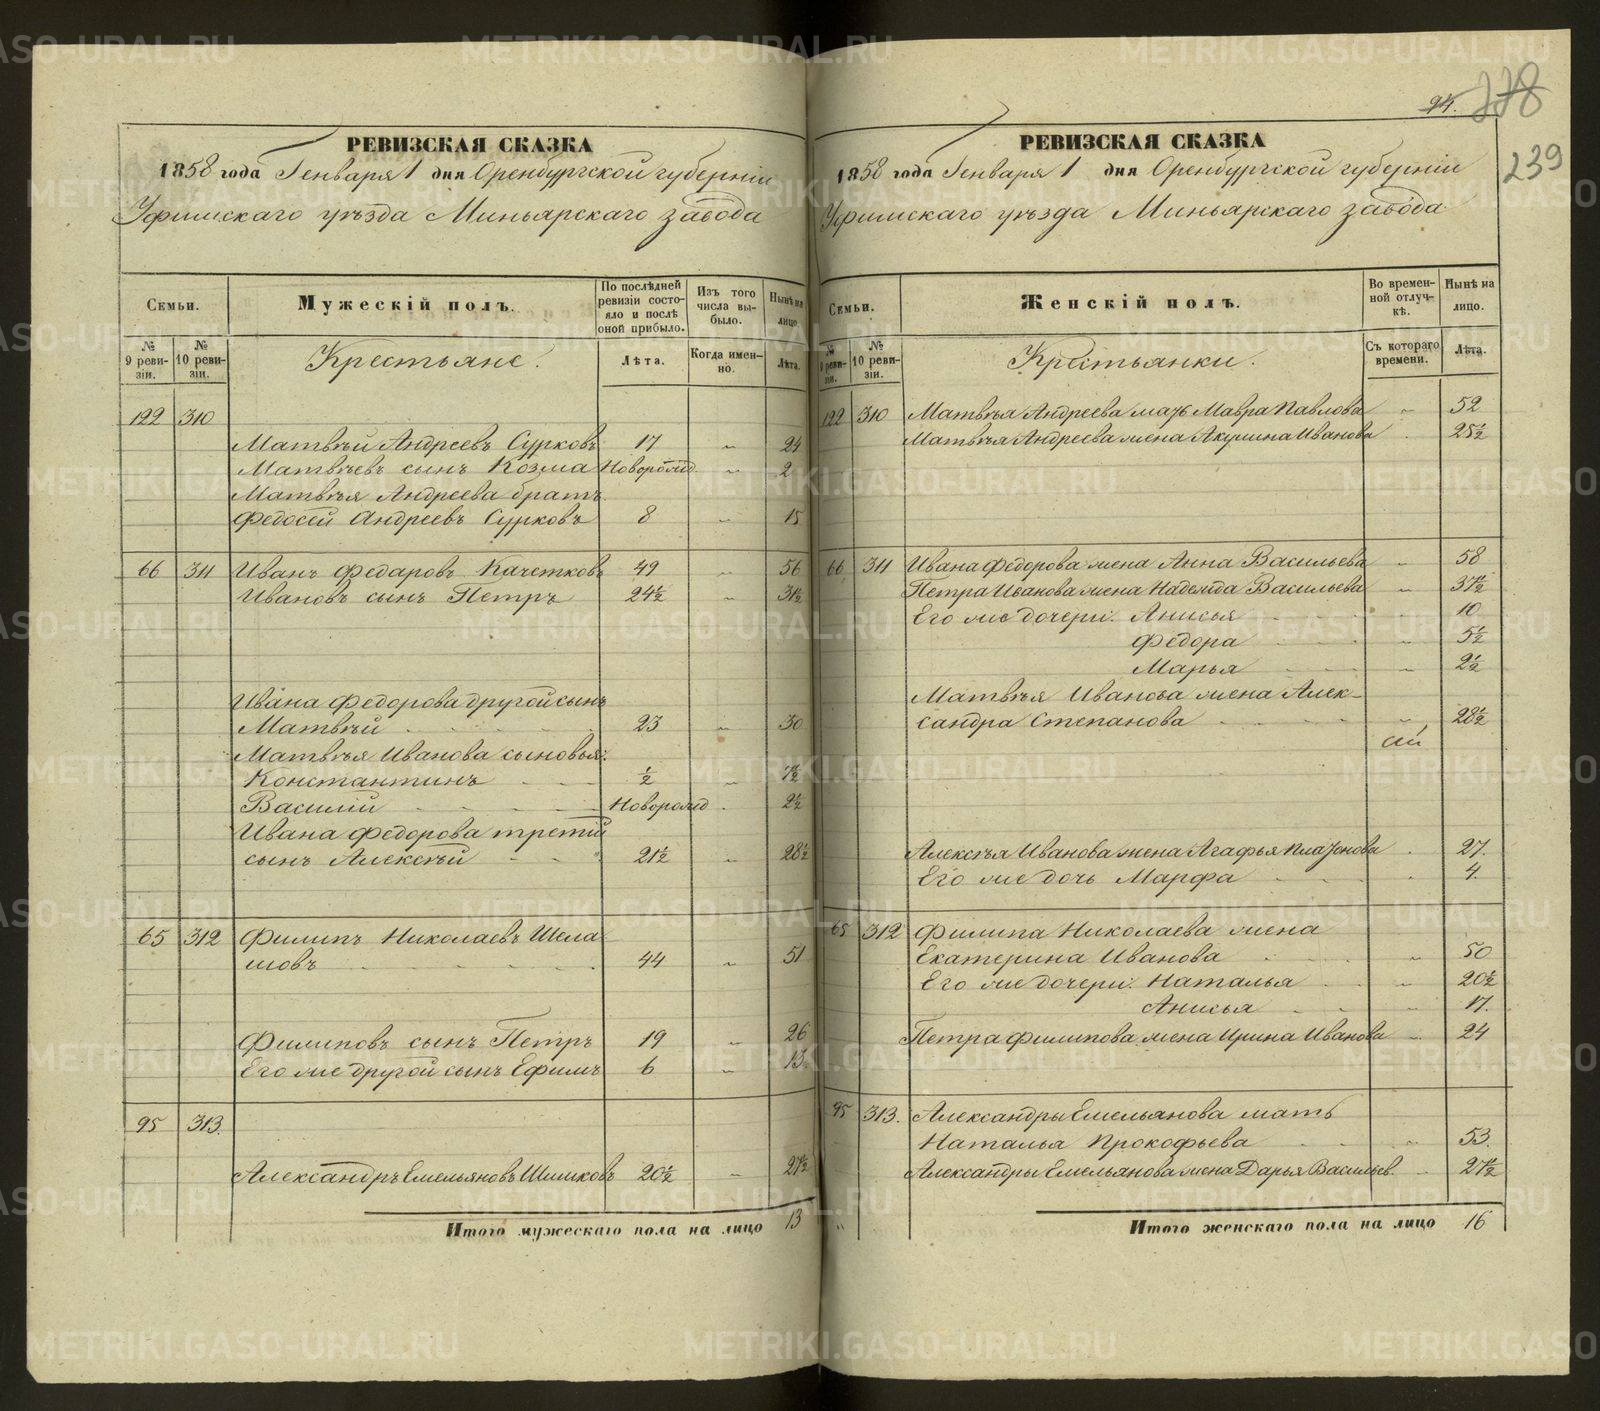 94. 278
239
РЕВИЗСКАЯ СКАЗКА
1858 года Генваря 1 дня Оренбургской губерніи
Уфимскаго уѣзда Миньярскаго завода
Семьи. Мужескій полъ. По послѣдней ревизіи состояло и послѣ оной прибыло. Изъ того числа выбыло. Нынѣ на лицо.
№ 9 ревизіи. № 10 ревизіи. Крестьяне. Лѣта. Когда именно. Лѣта.
122 310
Матвѣй Андреевъ Сурковъ 17 „ 24
Матвѣевъ сынъ Козма Новорожд „ 2
Матвѣя Андреева братъ
Федосей Андреевъ Сурковъ 8 „ 15
66 311 Иванъ Федаровъ Качетковъ 49 „ 56
Ивановъ сынъ Петръ 24½ „ 31½
Ивана Федорова другой сынъ
Матвѣй 23 „ 30
Матвѣя Иванова сыновья:
Константинъ ½ „ 7½
Василій Новорожд „ 2½
Ивана Федорова третій
сынъ Алексѣй 21½ „ 28½
65 312 Филипъ Николаевъ Шела
мовъ 44 „ 51
Филиповъ сынъ Петръ 19 „ 26
Его же другой сынъ Ефимъ 6 „ 13
95 313.
Александръ Емельяновъ 20½ „ 27½
Итого мужескаго пола на лицо 13
РЕВИЗСКАЯ СКАЗКА
1858 года Генваря 1 дня Оренбургской губерніи
Уфимскаго уѣзда Миньярскаго завода
Семьи. Женскій полъ. Во временной отлучкѣ. Нынѣ на лицо.
№ 9 ревизіи. № 10 ревизіи. Крестьянки. Съ котораго времени. Лѣта.
122 310 Матвѣя Андреева мать Мавра Павлова „ 52
Матвѣя Андреева жена Акулина Иванова „ 25½
66 311 Ивана Федорова жена Анна Васильева „ 58
Петра Иванова жена Надежда Васильева „ 37½
Его же дочери: Анисья „ 10
Федора „ 5½
Марья „ 2½
Матвѣя Иванова жена Алек-
сандра Степанова „ 28½
Алексѣя Иванова жена Агафья Платонова „ 27.
Его же дочь Марфа „ 4.
65 312 Филипа Николаева жена
Екатерина Иванова „ 50
Его же дочери: Наталья „ 20½
Анисья „ 17.
Петра Филипова жена Ирина Иванова „ 24
95 313. Александры Емельянова мать
Наталья Прокофьева „ 53.
Александры Емельянова жена Дарья Васильев. „ 27½
Итого женскаго пола на лицо 16
METRIKI.GASO-URAL.RU